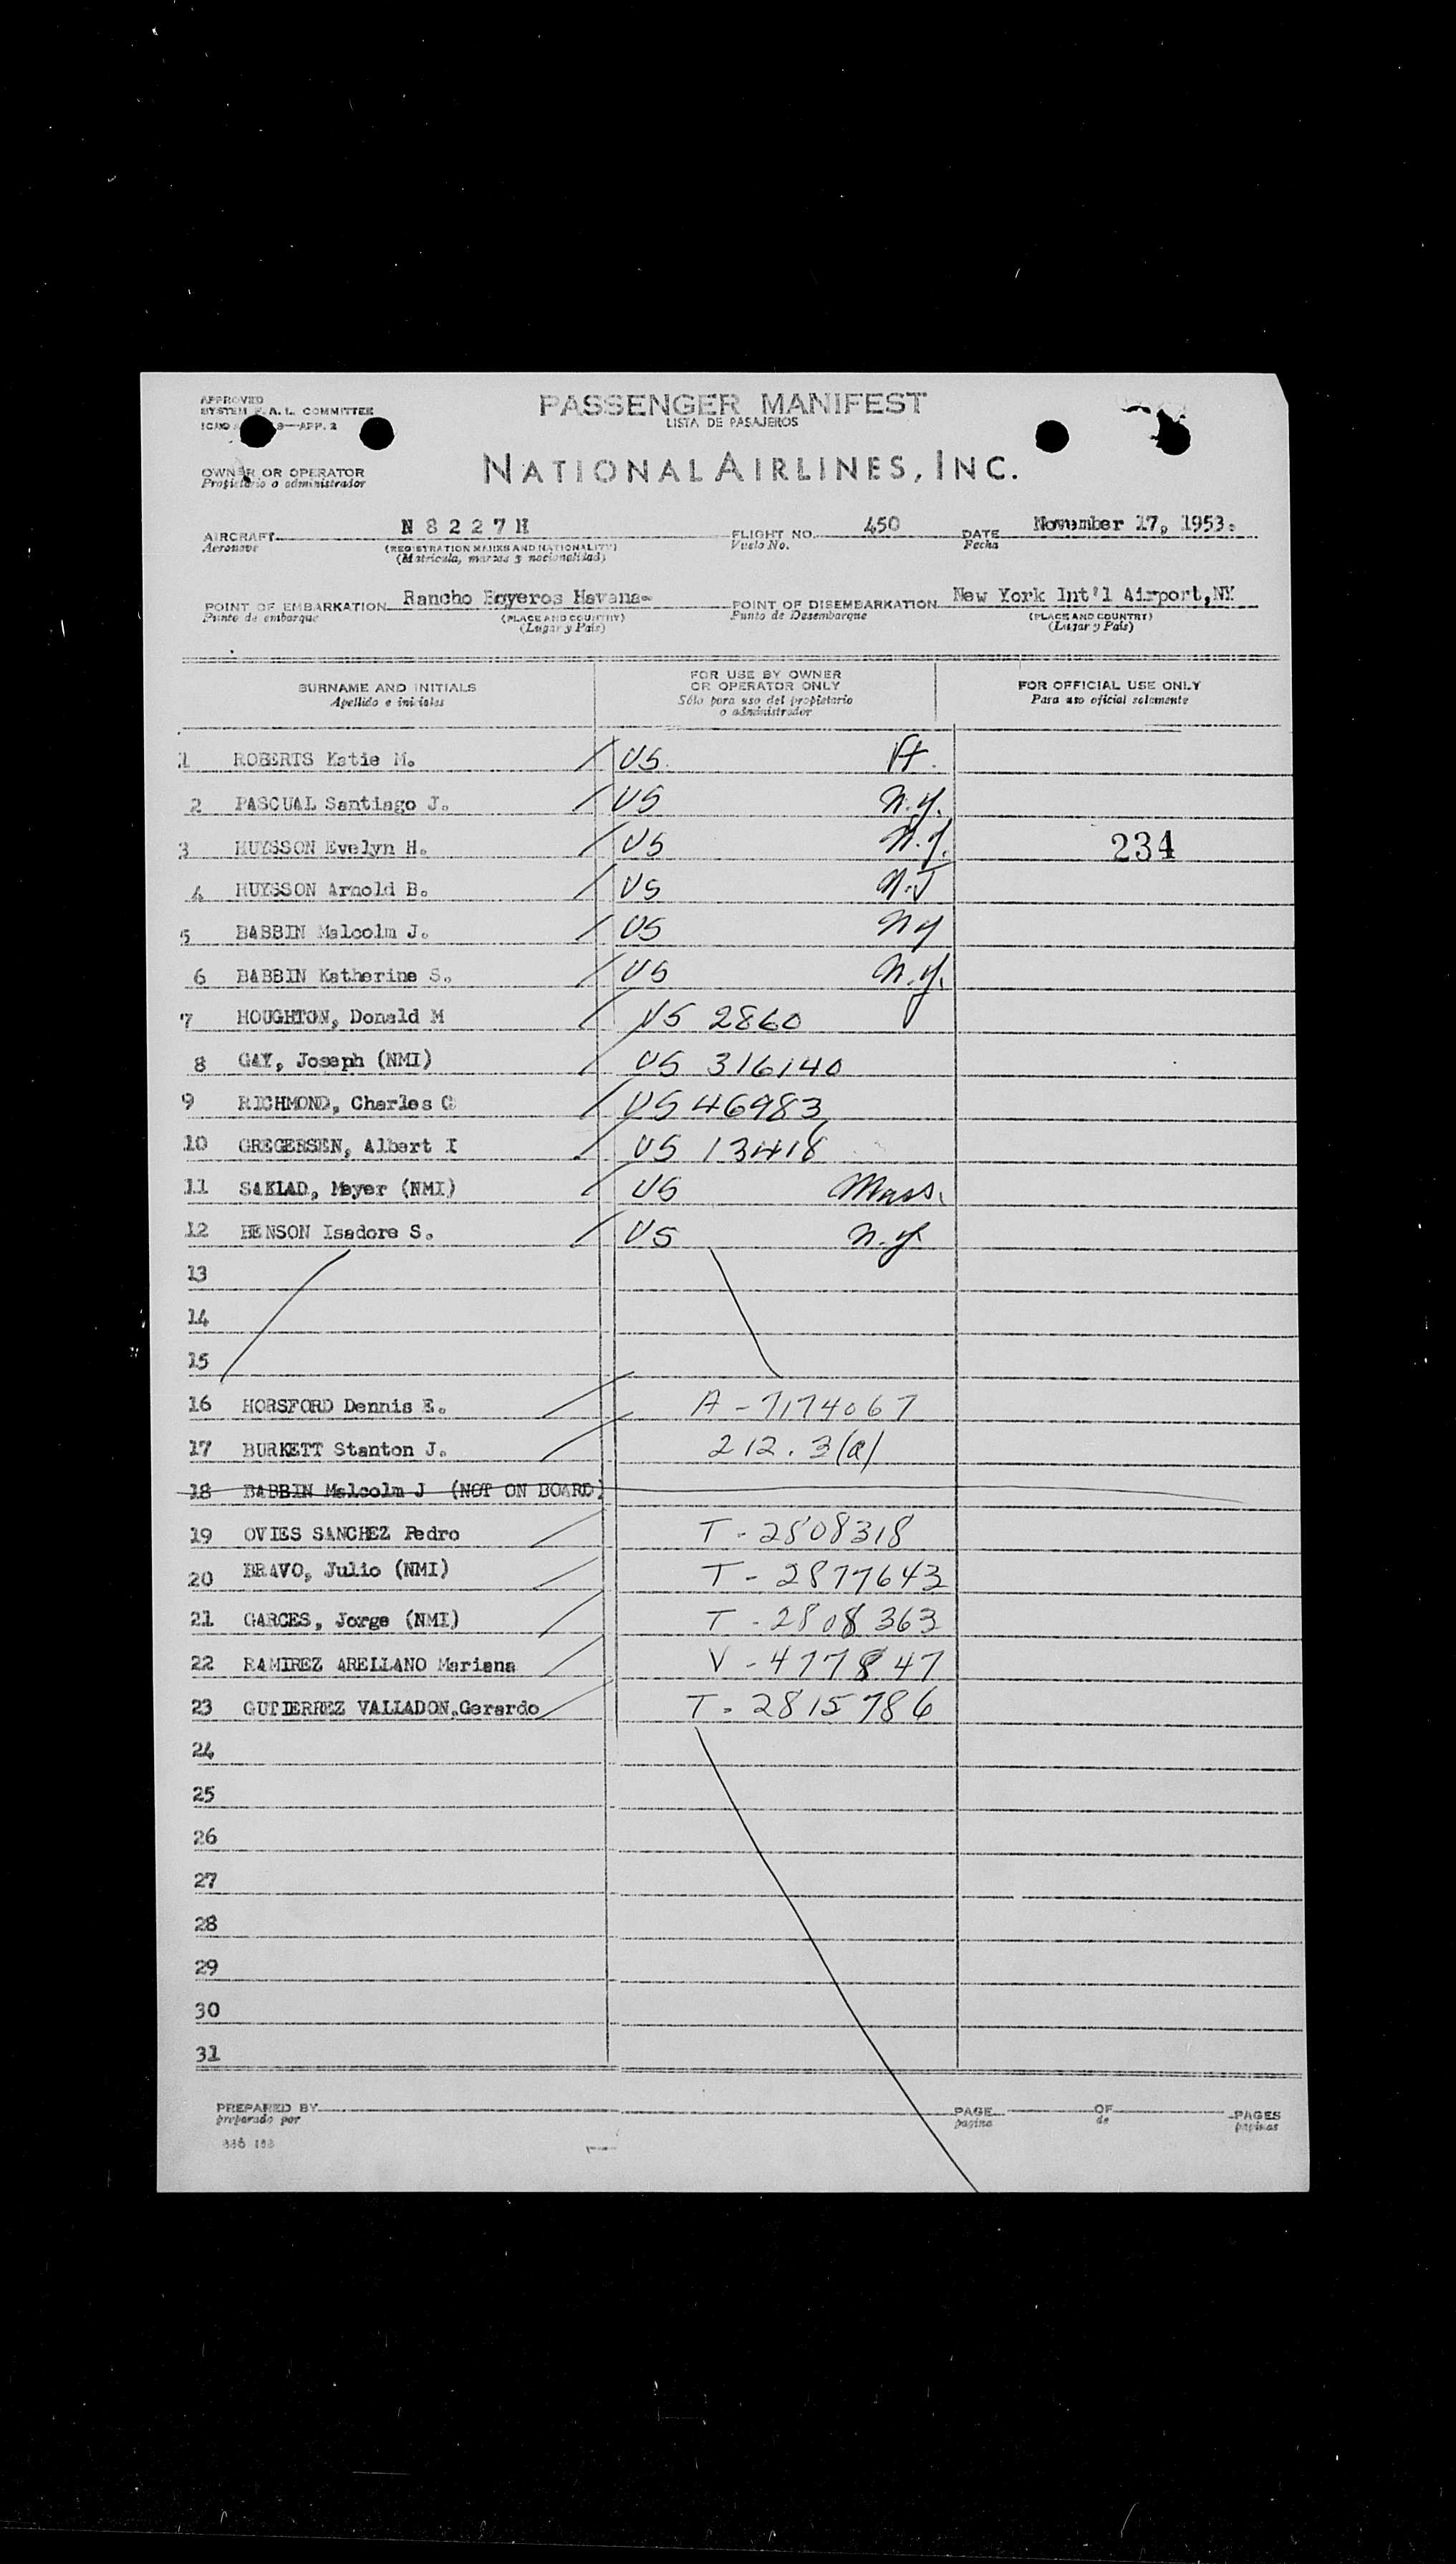 APPROVED
SYSTEM F. A. L. COMMITTEE
ICAO 9—APP. 2
PASSENGER MANIFEST
LISTA DE PASAJEROS
OWNER OR OPERATOR
Propietario o administrador
NATIONAL AIRLINES, INC.
AIRCRAFT N 8 2 2 7 H FLIGHT NO. 450 DATE November 17, 1953.
Aeronave (REGISTRATION MARKS AND NATIONALITY) Vuelo No. Fecha
(Matricula, marcas y nacionalidad)
POINT OF EMBARKATION Rancho Boyeros Havana- POINT OF DISEMBARKATION New York Int'l Airport,NY
Punto de embarque (PLACE AND COUNTRY) Punto de Desembarque (PLACE AND COUNTRY)
(Lugar y País) (Lugar y País)
SURNAME AND INITIALS
Apellido e iniciales
FOR USE BY OWNER
OR OPERATOR ONLY
Sólo para uso del propietario
o administrador
FOR OFFICIAL USE ONLY
Para uso oficial solamente
1 ROBERTS Katie M. US. Vt.
2 PASCUAL Santiago J. US N.Y.
3 HUYSSON Evelyn H. US N.J. 234
4 HUYSSON Arnold B. US N.J
5 BABBIN Malcolm J. US NY
6 BABBIN Katherine S. US N.Y.
7 HOUGHTON, Donald M US 2860
8 GAY, Joseph (NMI) US 316140
9 RICHMOND, Charles G US 46983
10 GREGERSEN, Albert I US 13418
11 SAKLAD, Meyer (NMI) US Mass.
12 HENSON Isadore S. US N.Y.
13
14
15
16 HORSFORD Dennis E. A-7174067
17 BURKETT Stanton J. 212.3(a)
18 BABBIN Malcolm J (NOT ON BOARD)
19 OVIES SANCHEZ Pedro T-2808318
20 BRAVO, Julio (NMI) T-2877643
21 GARCES, Jorge (NMI) T-2808363
22 RAMIREZ ARELLANO Mariana V-477847
23 GUTIERREZ VALLADON,Gerardo T-2815786
24
25
26
27
28
29
30
31
PREPARED BY PAGE OF PAGES
preparado por pagina de paginas